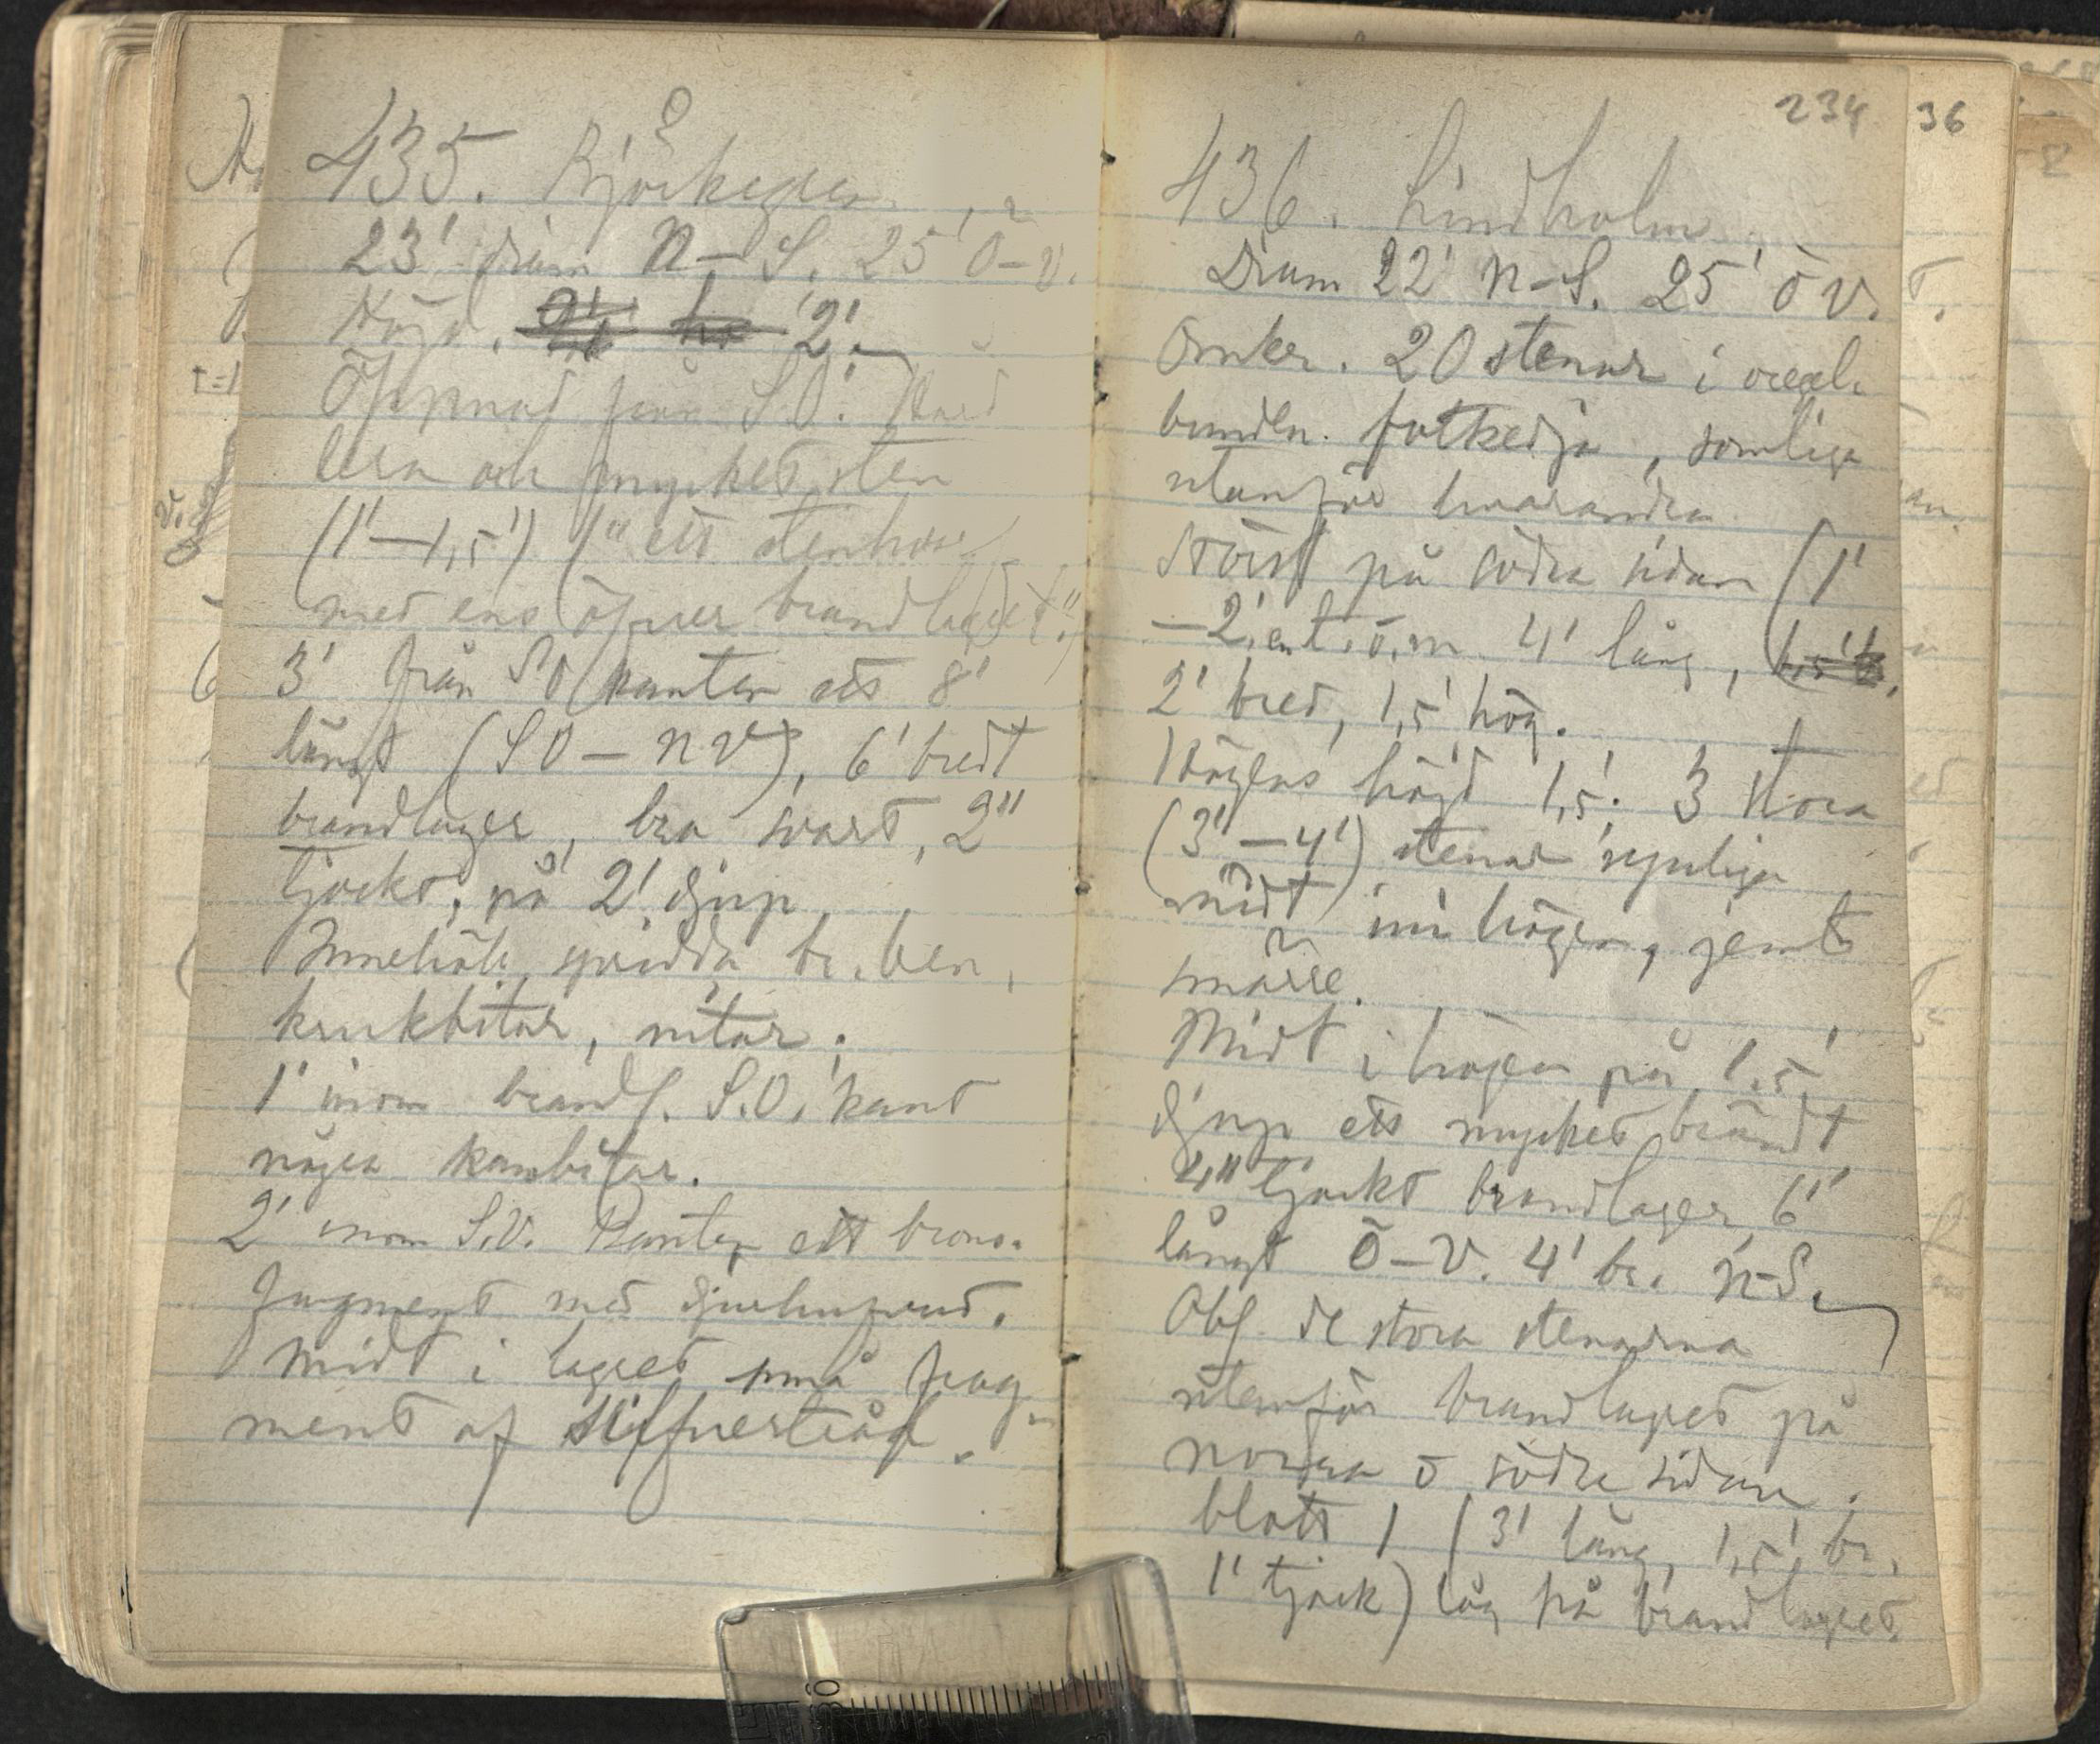 435. Björkegren.
23' diam N–S. 25' Ö–V.
Höjd. 2'.
Öppnad från S.O. Hård
lera och mycket sten
(1'–1,5') ("ett stenhvarf
med ens öfver brandlagret")
3' från SO kanten ett 8'
långt (SO–NV), 6' bredt
brandlager, bra svart, 2"
tjockt, på 2' djup.
Innehöll spridda br. ben,
krukbitar, nitar.
1' inom brandl. S.O. kant
några kambitar.
2' inom S.V. kanten ett brons.
fragment med djurhufvud.
Midt i lagret små frag
ment af silfvertråd.
234 36
436. Lindholm.
Diam 22' N–S. 25' Ö V.
Omkr. 20 stenar i oregel-
bunden fotkedja, somliga
utanför hvarandra.
Störst på södra sidan (1'
–2', en t.o.m. 4' lång,
2' bred, 1,5' hög.
Högens höjd 1,5'. 3 stora
(3'–4') stenar synliga
midt in i högen, jemte
smärre.
Midt i högen på 1,5'
djup ett mycket brändt
4" tjockt brandlager, 6'
långt Ö–V. 4' br. N–S.
Obs. de stora stenarna
utanför brandlagret på
norra o södra sidan.
blott 1 (3' lång, 1,5' br.
1' tjock) låg på brandlagret.